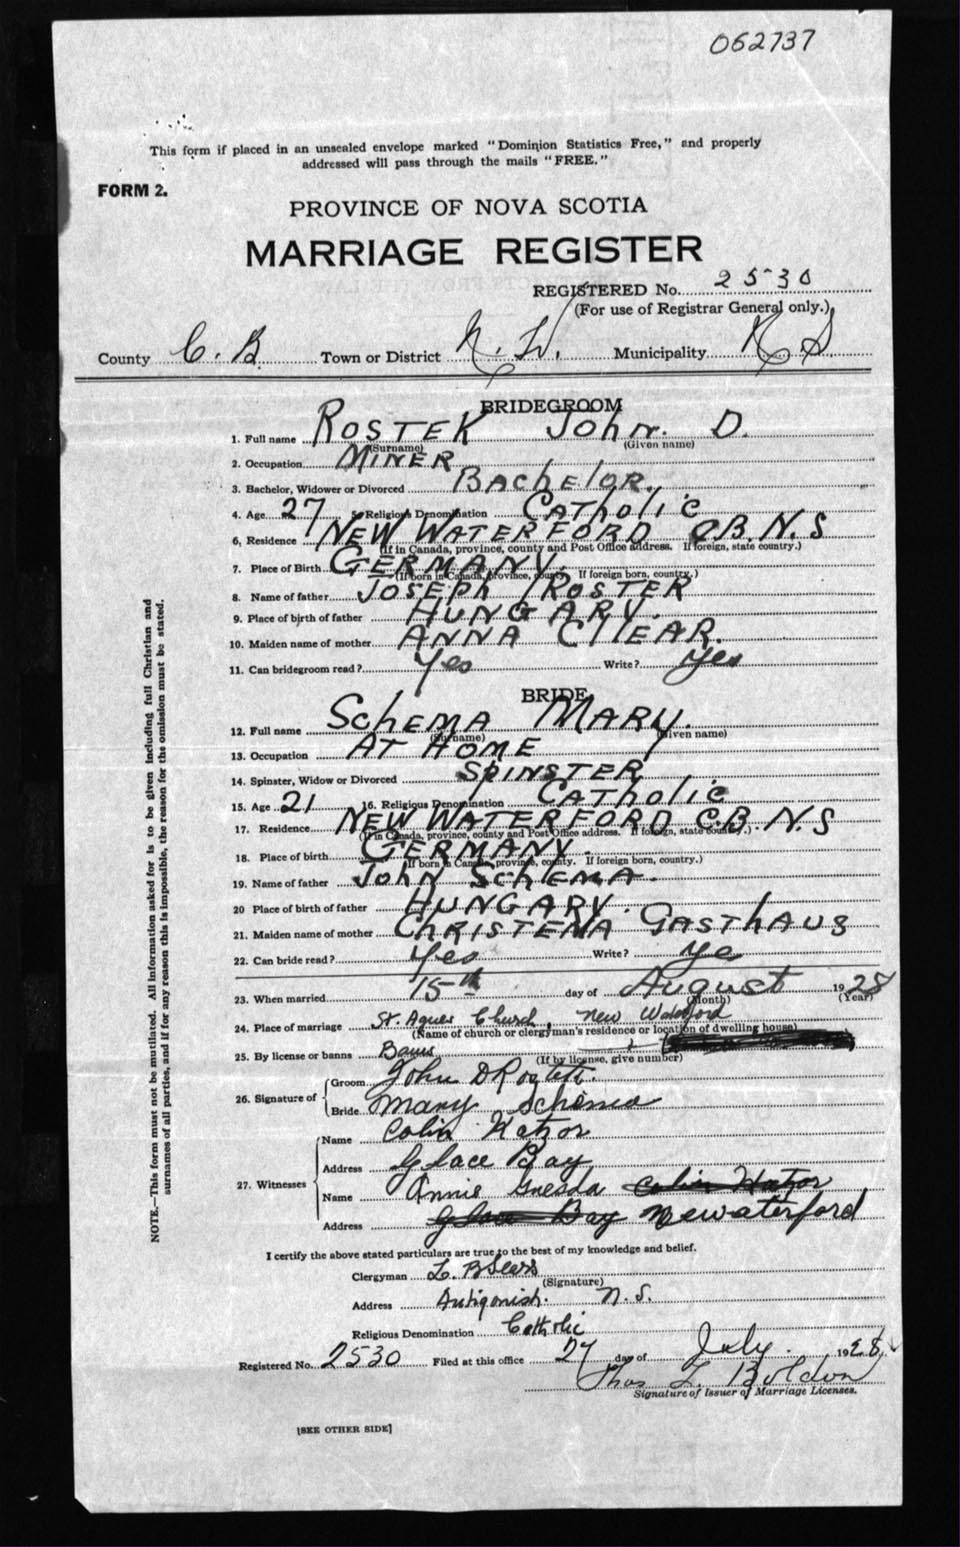 062737
This form if placed in an unsealed envelope marked "Dominion Statistics Free," and properly
addressed will pass through the mails "FREE."
FORM 2.
PROVINCE OF NOVA SCOTIA
MARRIAGE REGISTER
REGISTERED No. 2530
(For use of Registrar General only.)
County C. B. Town or District N. W. Municipality N S.
BRIDEGROOM
1. Full name ROSTEK John. D.
(Surname) (Given name)
2. Occupation MINER
3. Bachelor, Widower or Divorced BAChElOR.
4. Age 27 5. Religious Denomination CATholic
6, Residence NEW WATERFORD C.B. N.S
(If in Canada, province, county and Post Office address. If foreign, state country.)
7. Place of Birth GERMANY.
(If born in Canada, province, county. If foreign born, country.)
8. Name of father JOSEPh ROSTEK
9. Place of birth of father HUNGARY.
10. Maiden name of mother ANNA
11. Can bridegroom read? Yes Write? Yes
BRIDE
12. Full name SchEMA MARY.
(Surname) (Given name)
13. Occupation AT HOME
14. Spinster, Widow or Divorced SPINSTER
15. Age 21 16. Religious Denomination CATholic
17. Residence NEW WATERFORD C.B. N.S
(If in Canada, province, county and Post Office address. If foreign, state country.)
18. Place of birth GERMANY.
(If born in Canada, province, county. If foreign born, country.)
19. Name of father JohN SchEMA.
20 Place of birth of father HUNGARY.
21. Maiden name of mother ChRISTENA GASTHAUS
22. Can bride read? Yes Write? Ye
23. When married 15th day of August 1928
(Month) (Year)
24. Place of marriage St. Agnes Church, New Waterford
(Name of church or clergyman's residence or location of dwelling house)
25. By license or banns Banns
(If by license, give number)
26. Signature of
Groom John D Rostek.
Bride Mary Schema
27. Witnesses
Name Colin Katzor
Address Glace Bay
Name Annie Gnesda Colin Katzor
Address Glace Bay Newaterford
I certify the above stated particulars are true to the best of my knowledge and belief.
Clergyman L. B Sears
(Signature)
Address Antigonish. N. S.
Religious Denomination Catholic
Registered No. 2530 Filed at this office 27 day of July. 1928.
Thos L. Boldon
Signature of Issuer of Marriage Licenses.
[SEE OTHER SIDE]
NOTE.—This form must not be mutilated. All information asked for is to be given including full Christian and
surnames of all parties, and if for any reason this is impossible, the reason for the omission must be stated.